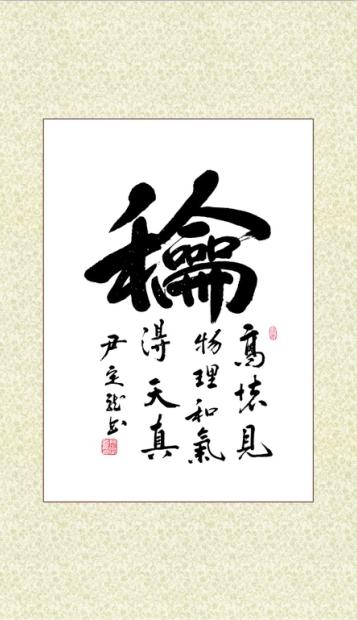 龢
高懷見
物理和氣
得天真
尹定龙书